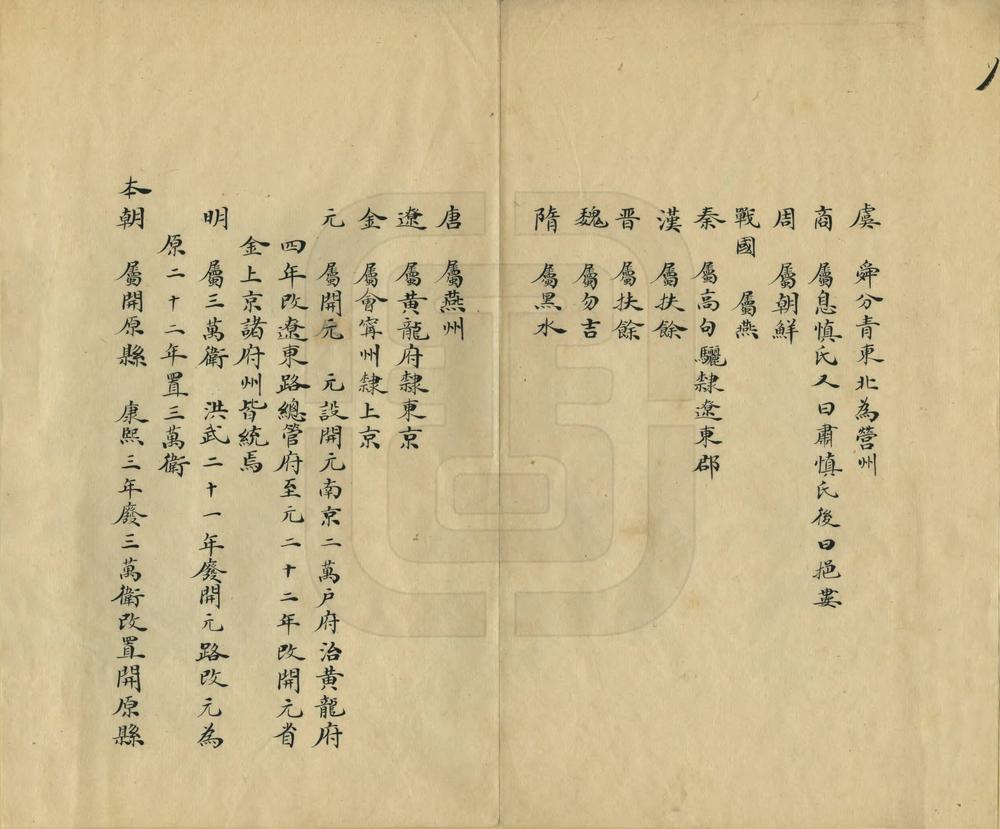 虞 舜分青東北為營州
商 屬息慎氏又曰肅慎氏後曰挹婁
周 屬朝鮮
戰國 屬燕
秦 屬高句驪隸遼東郡
漢 屬扶餘
晉 屬扶餘
魏 屬勿吉
隋 屬黑水
唐 屬燕州
遼 屬黄龍府隸東京
金 屬會寧州隸上京
元 屬開元 元設開元南京二萬户府治黄龍府
四年改遼東路總管府至元二十二年改開元省
金上京諸府州皆統焉
明 屬三萬衛 洪武二十一年廢開元路改元為
原二十二年置三萬衛
本朝 屬開原縣 康熙三年廢三萬衛改置開原縣